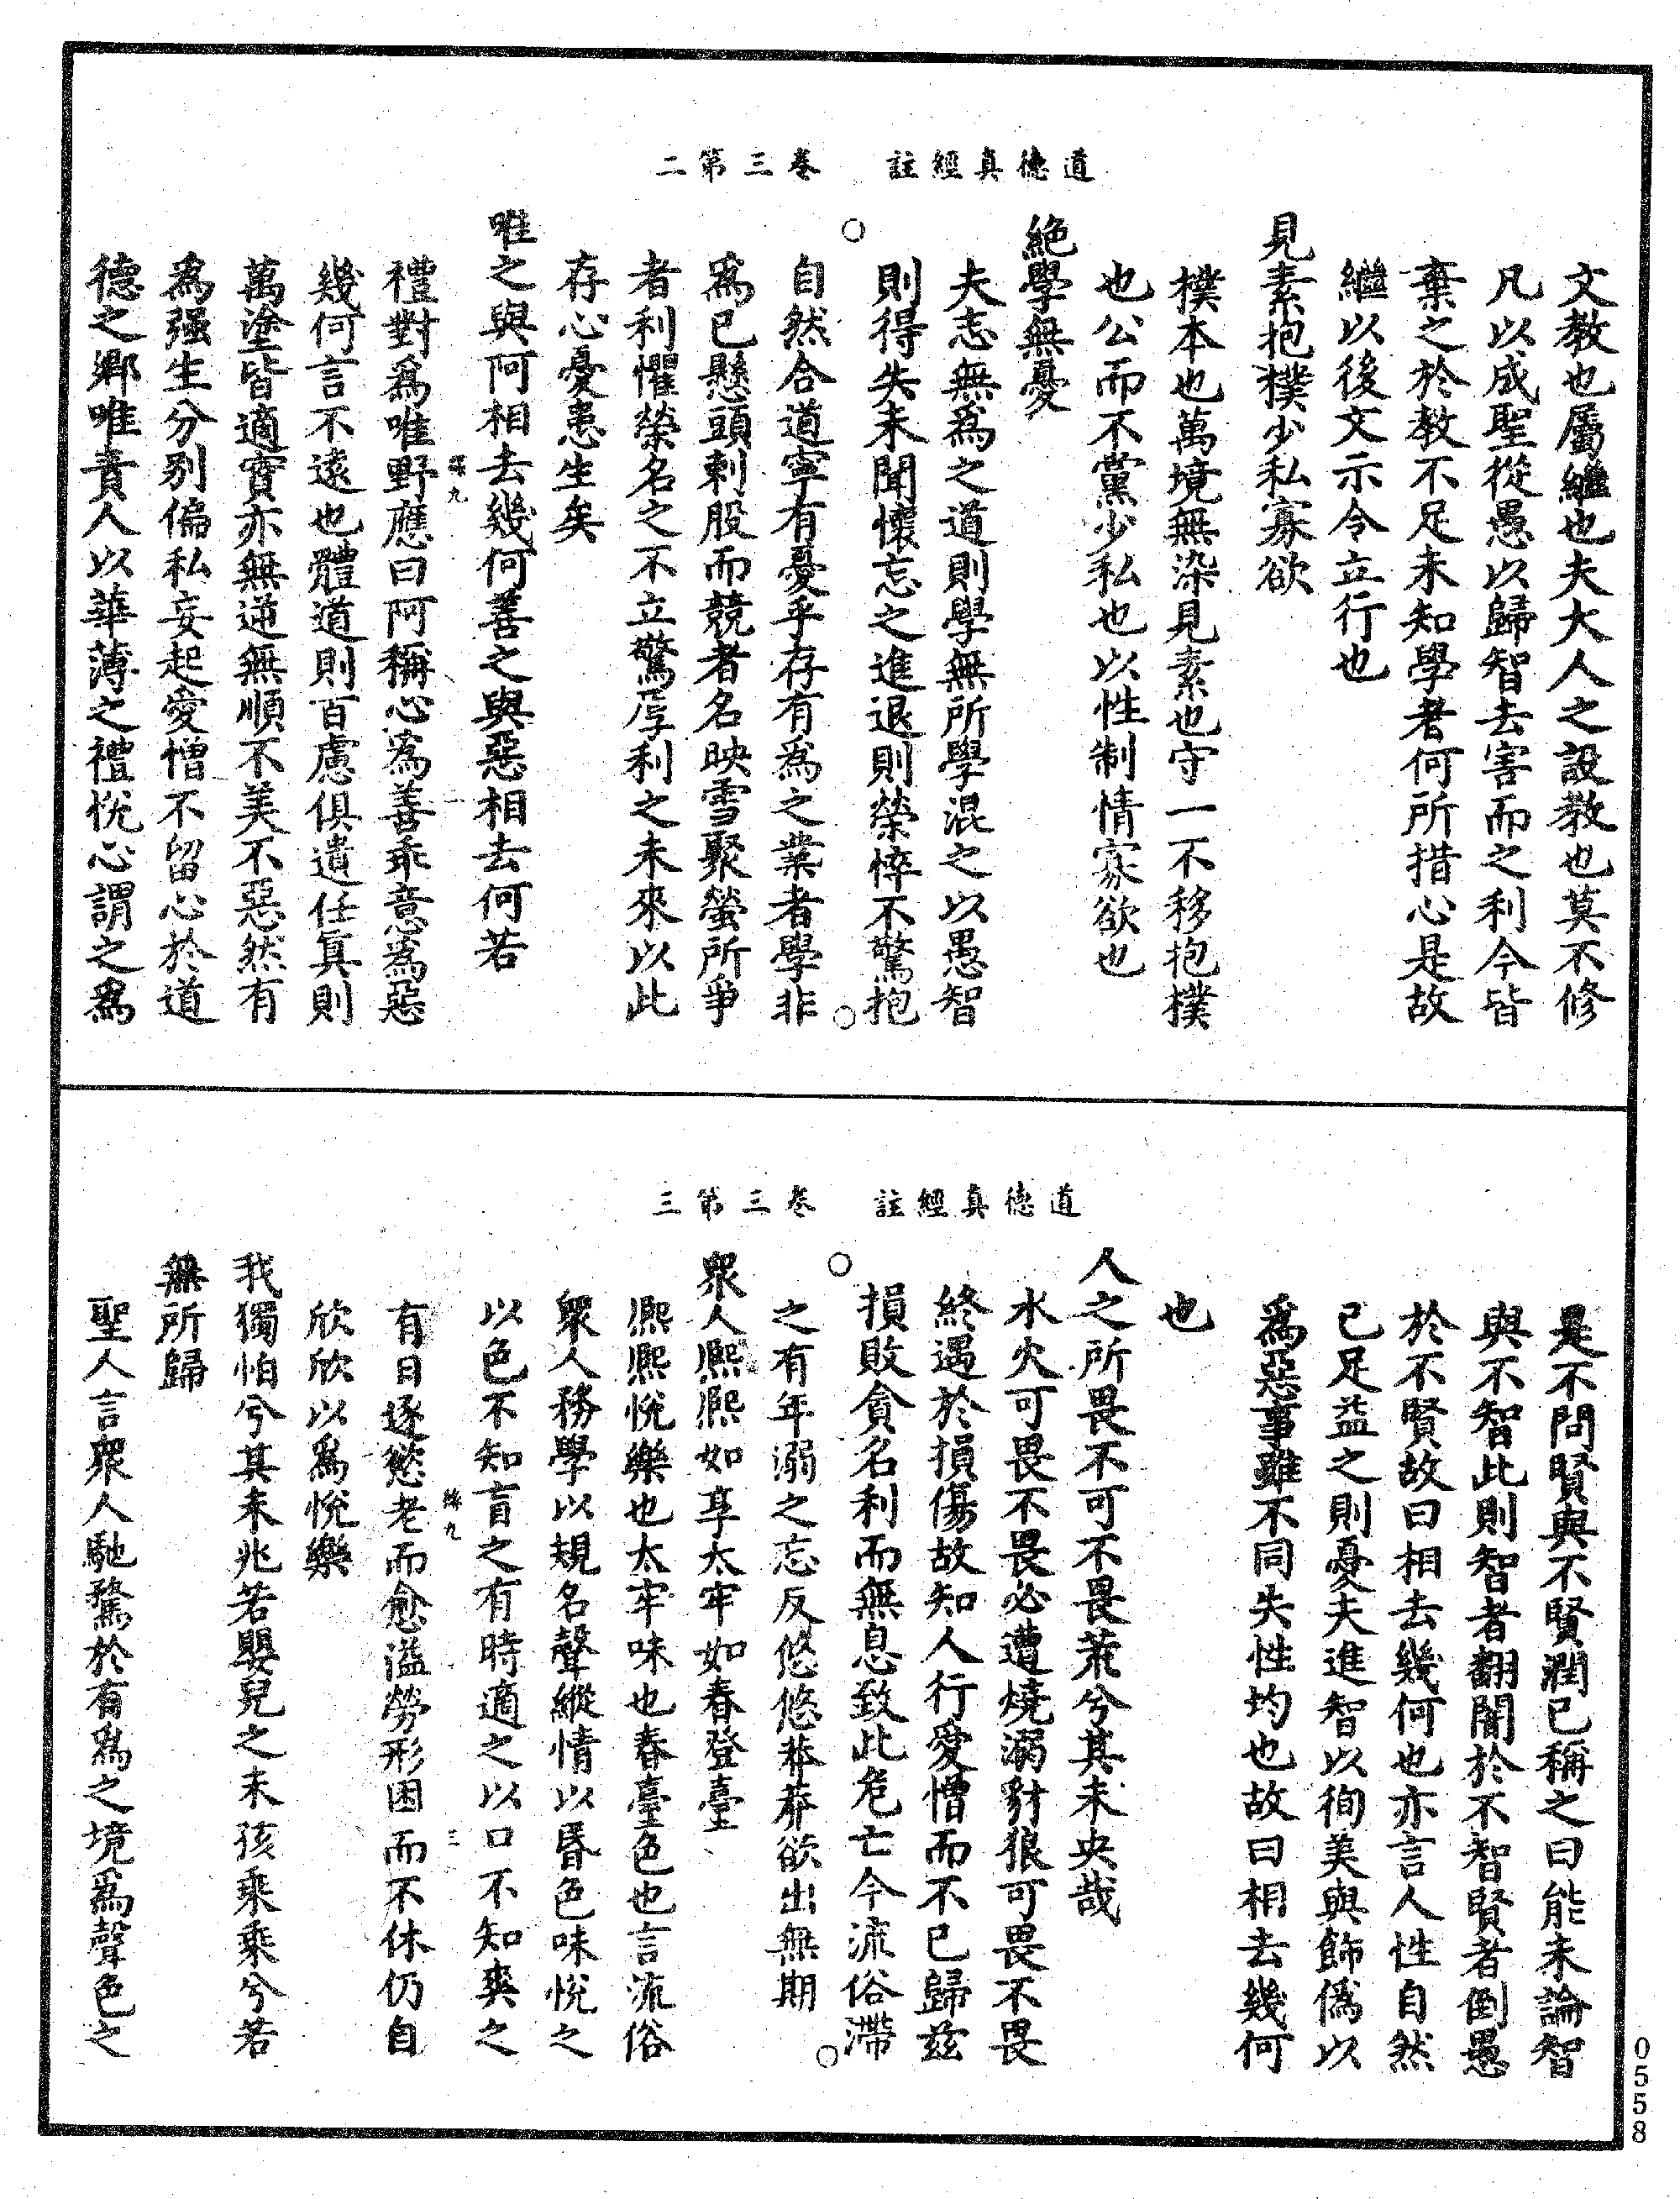 道德真經註　卷三第二
文教也屬繼也夫大人之設教也莫不修
凡以成聖從愚以歸智去害而之利今皆
棄之於教不足未知學者何所措心是故
繼以後文示令立行也
見素抱樸少私寡欲
樸本也萬境無染見素也守一不移抱樸
也公而不黨少私也以性制情寡欲也
絕學無憂
夫志無為之道則學無所學混之以愚智
則得失未聞懷忘之進退則榮悴不驚抱
自然合道寧有憂乎存有為之業者學非
為已懸頭刺股而競者名映雪聚螢所爭
者利懼榮名之不立驚厚利之未來以此
存心憂患生矣
唯之與阿相去幾何善之與惡相去何若
禮對為唯野應曰阿稱心為善乖意為惡
幾何言不遠也體道則百慮俱遺任真則
萬塗皆適實亦無逆無順不美不惡然有
為强生分别偏私妄起愛憎不留心於道
德之鄉唯責人以華薄之禮悅心謂之為
道德真經註　卷三第三
是不問賢與不賢潤已稱之曰能未論智
與不智此則智者翻闇於不智賢者倒愚
於不賢故曰相去幾何也亦言人性自然
已足益之則憂夫進智以徇美與飾偽以
為惡事雖不同失性均也故曰相去幾何
也
人之所畏不可不畏荒兮其未央哉
水火可畏不畏必遭燒溺豺狼可畏不畏
終遇於損傷故知人行愛憎而不已歸兹
損敗貪名利而無息致此危亡今流俗滯
之有年溺之忘反悠悠莽莽欲出無期
眾人熈熈如享太牢如春登臺
熈熈悅樂也太牢味也春臺色也言流俗
眾人務學以規名聲縱情以昏色味悅之
以色不知盲之有時適之以口不知爽之
有日逐慾老而愈溢勞形困而不休仍自
欣欣以為悅樂
我獨怕兮其未兆若嬰兒之未孩乘乘兮若
無所歸
聖人言眾人馳騖於有為之境為聲色之
絲九
二
絲九
三
0558